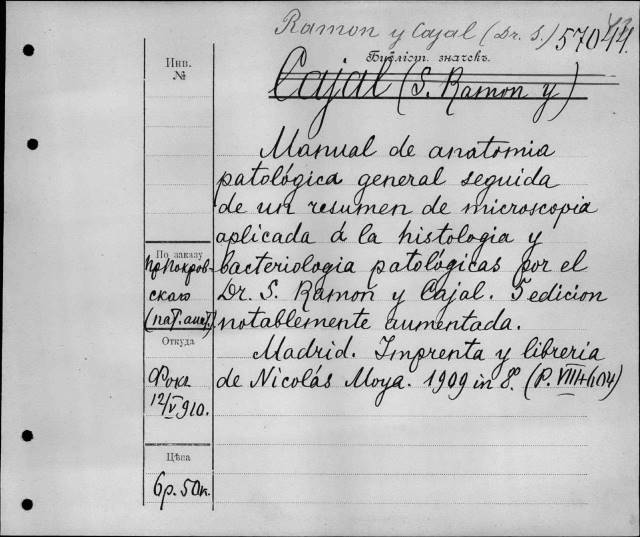 Ramon y Cajal (Dr. S.) 57044.
Библіот. значекъ.
Инв.
№
Cajal (S. Ramon y)
Manual de anatomia
patológica general seguida
de un resumen de microscopia
aplicada á la histologia y
По заказу
bacteriologia patológicas por el
Пр Покров-
скаго
Dr. S. Ramon y Cajal. 5 edicion
(пат. анат.)
notablemente aumentada.
Откуда
Madrid. Imprenta y libreria
de Nicolás Moya. 1909 in 8. (P. VIII+
Фока
12/V 910.
Цѣна
6 р. 50 к.